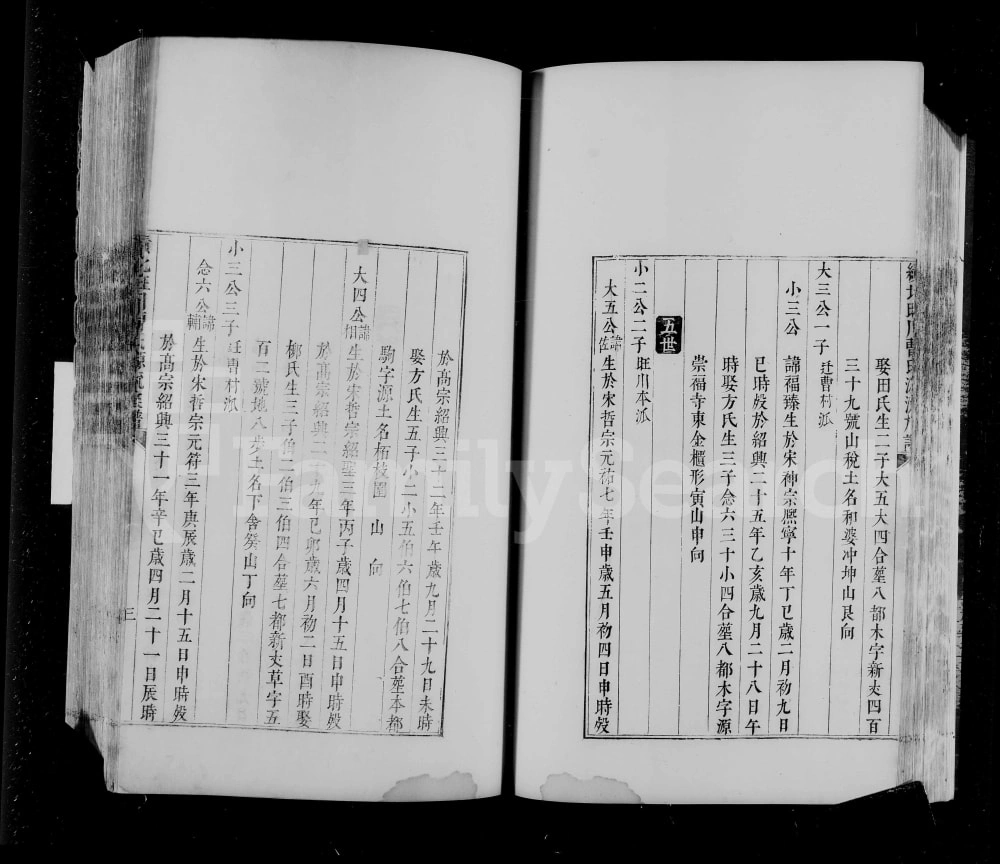 娶田氏生二子大五大四合塟八都木字新丈四百
三十九號山稅土名和婆冲坤山艮向
大三公一子迁曹村派
小三公 諱福臻生於宋神宗熈寧十年丁巳歲二月初九日
巳時殁於紹興二十五年乙亥歲九月二十八日午
時娶方氏生三子念六三十小四合塟八都木字源
崇福寺東金櫃形寅山申向
五世
小二公二子旺川本派
大五公諱佐生於宋哲宗元祐七年壬申歲五月初四日申時殁
於高宗紹興三十二年壬午歲九月二十九日未時
娶方氏生五子小二小五伯六伯七伯八合塟本都
駒字源土名柘枝園 山 向
大四公諱相生於宋哲宗紹聖三年丙子歲四月十五日申時殁
於高宗紹興二十九年己卯歲六月初二日酉時娶
柳氏生三子伯二伯三伯四合塟七都新丈草字五
百二號地八步土名下舍癸山丁向
小三公三子迁曹村派
念六公諱輔生於宋哲宗元符三年庚辰歲二月十五日申時殁
於高宗紹興三十一年辛巳歲四月二十一日辰時
三
FamilySearch